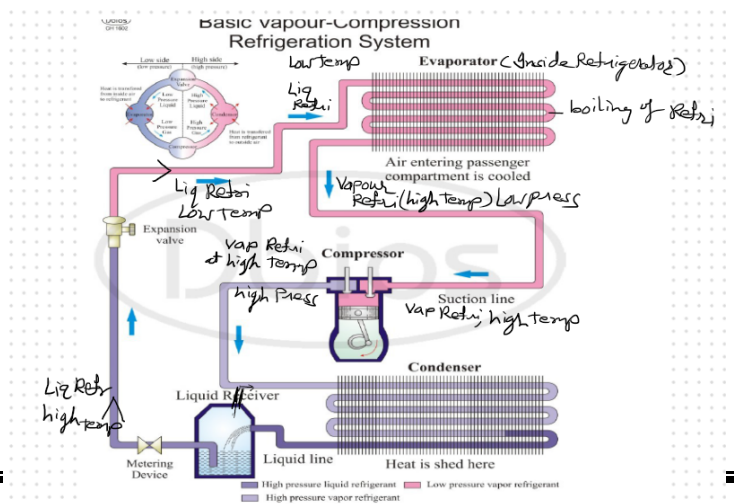 Dbios
DH 1602
Basic Vapour-Compression
Refrigeration System
Low side
(low pressure)
High side
(high pressure)
Expansion
Valve
Heat is transferred
from inside air
to refrigerant
Low
Pressure
Liquid
High
Pressure
Liquid
Evaporator
Condenser
Low
Pressure
Gas
High
Pressure
Gas
Heat is transferred
from refrigerant
to outside air
Compressor
Low temp
Liq
Refri
Evaporator (Inside Refrigerator)
boiling of Refri
Air entering passenger
compartment is cooled
Liq Refri
Low Temp
Vapour
Refri (high temp) Low press
Expansion
valve
Vap Refri
at high temp
high Press
Compressor
Suction line
Vap Refri, high temp
Dbios
Condenser
Liq Refr
high temp
Liquid Receiver
Liquid line
Metering
Device
Heat is shed here
High pressure liquid refrigerant
Low pressure vapor refrigerant
High pressure vapor refrigerant